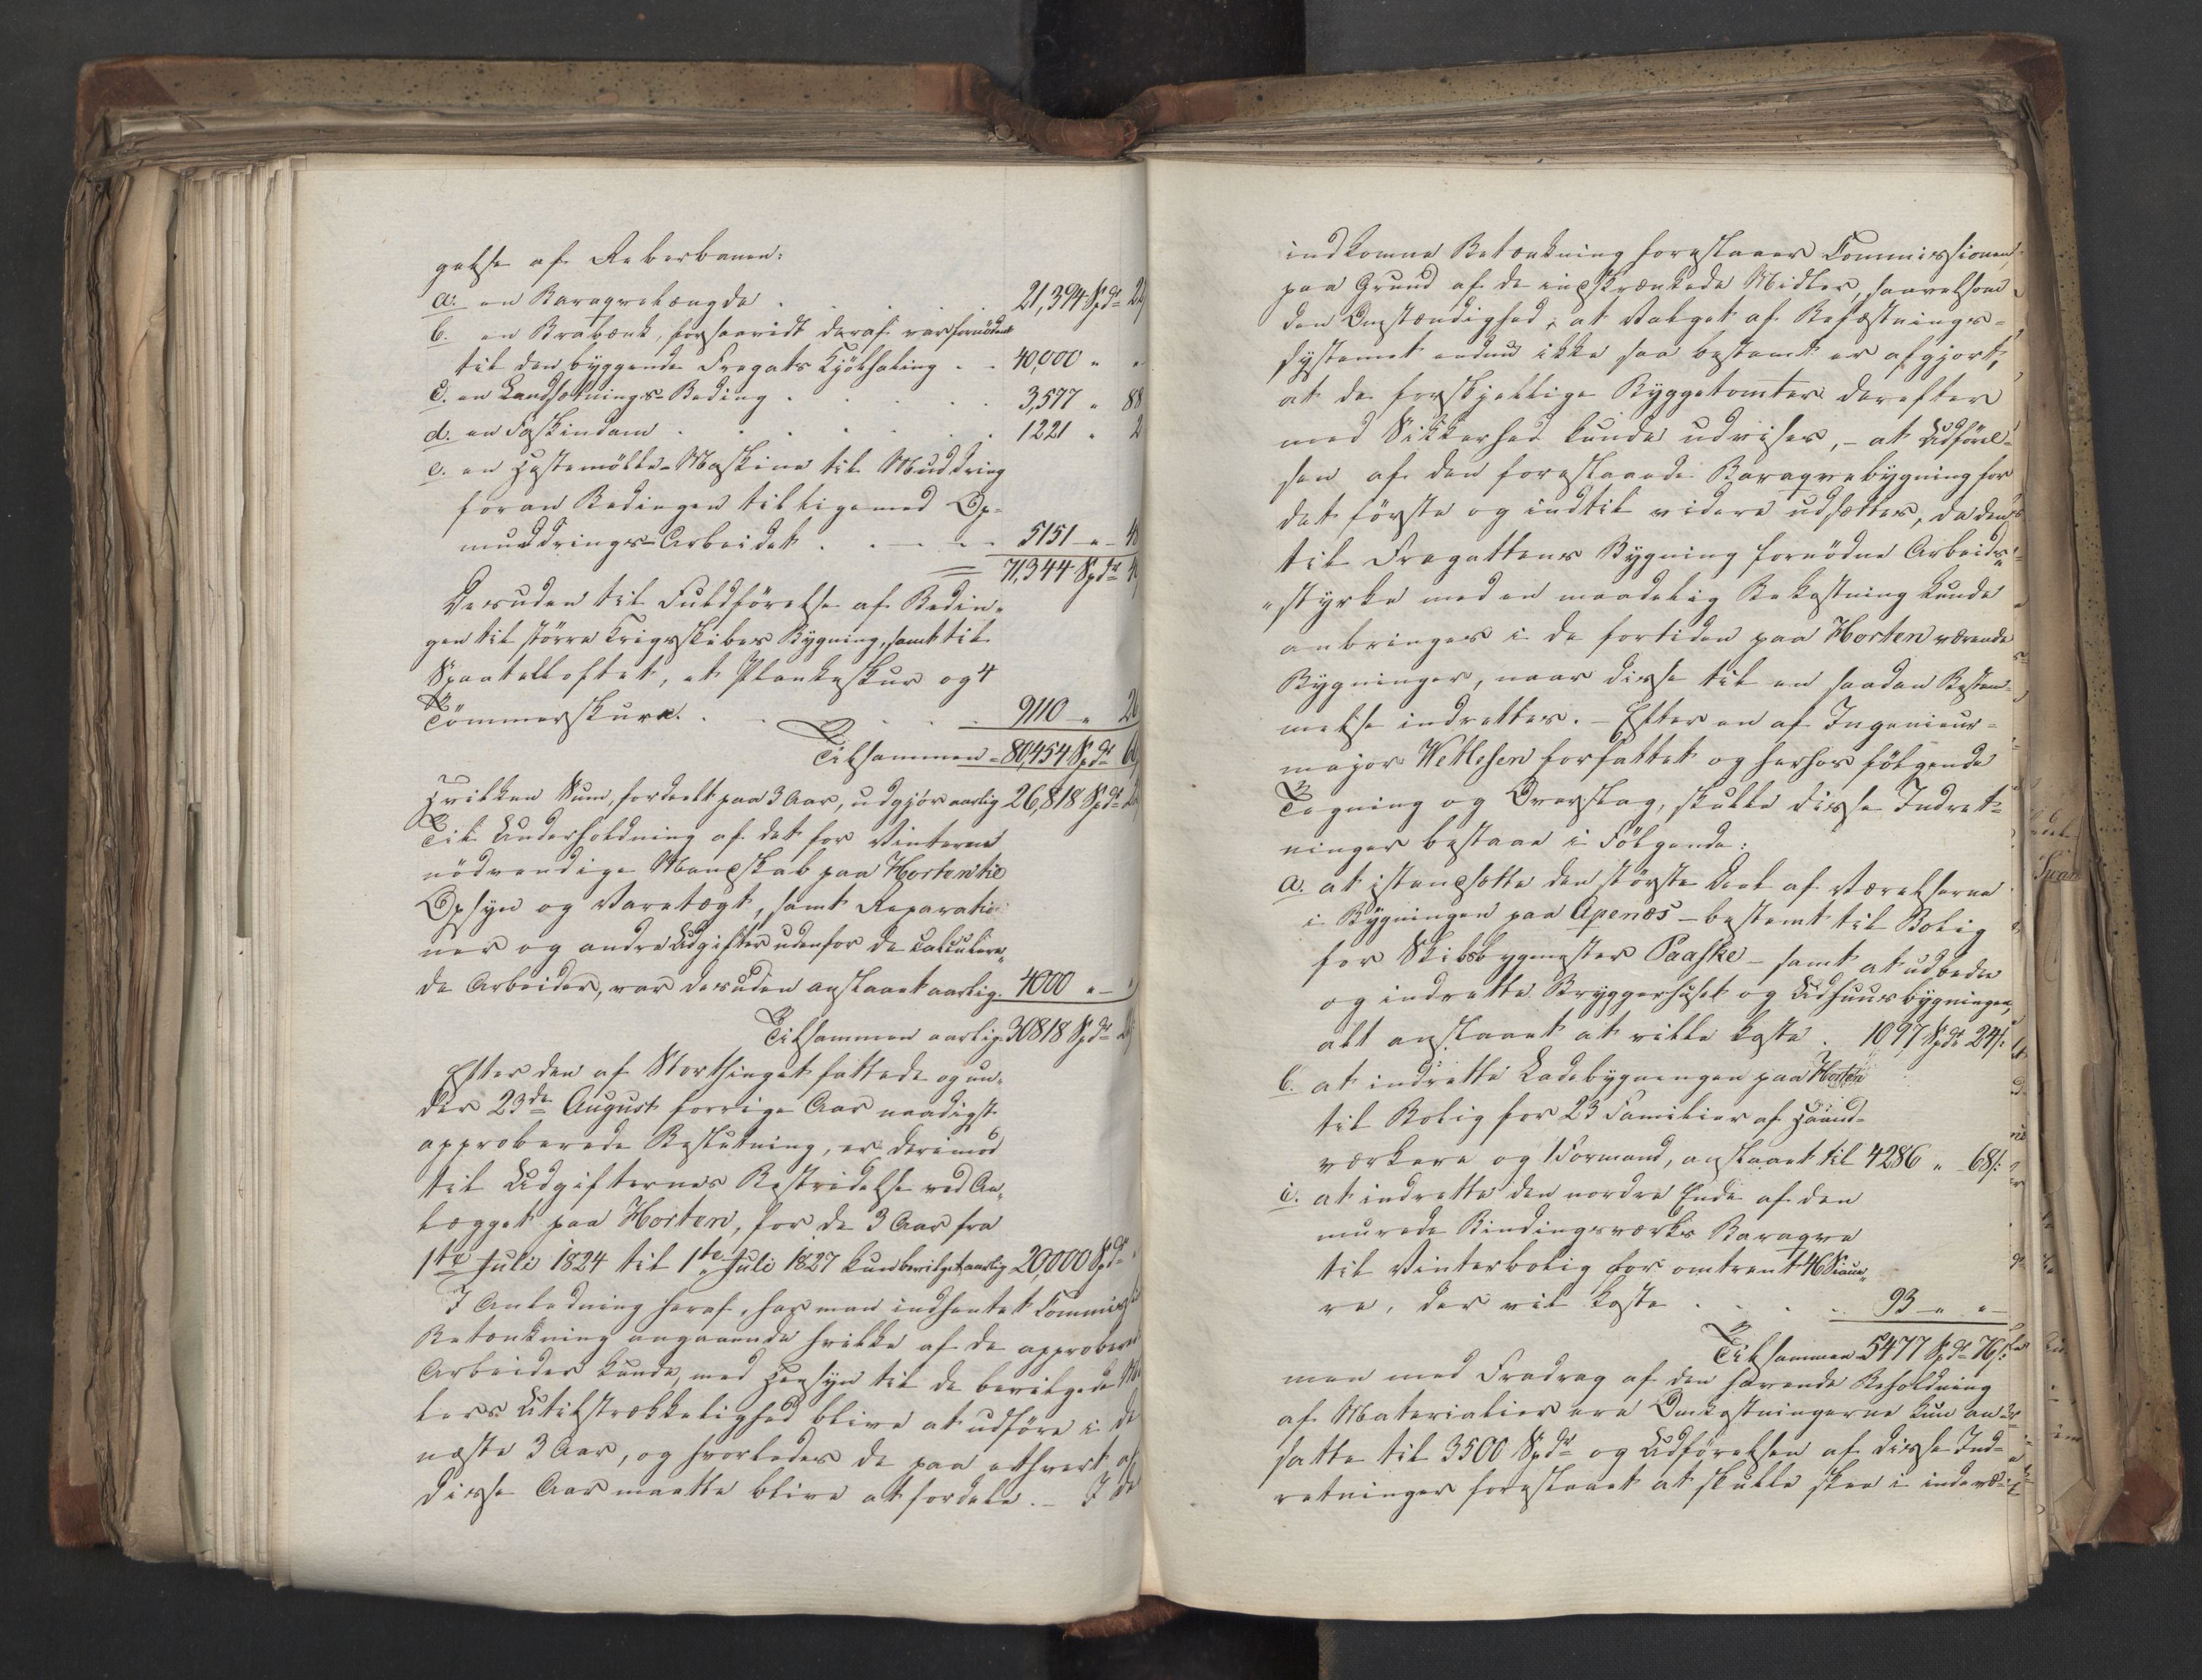 gelse af Reberbanen:
a. en Baraquelængde . . . . . 21,394 Spdr 2
b. en Brabænk, forsaavidt deraf var fornödent
til den byggende Fregats Kjölhaling . . 40,000 " "
c. en Landsætnings-Beding . . . . 3,577 " 88
d. en Faskindam . . . . . . . 1221 " 2
e. en Hestemölle-Maskine til Muddring
foran Bedingen tilligemed Op-
muddrings-Arbeidet . . — . — 5151 — " — 48
= 71,344 Spdr
Desuden til Fuldförelse af Bedin-
gen til större Krigsskibes Bygning, samt til
Spantelloftet, et Plankeskur og 4
Tömmerskure. . . . . . . 9110 — " 2
Tilsammen = 80,454 Spdr 6
Hvilken Sum, fordeelt paa 3 Aar, udgjör aarlig 26,818 Spdr
Til Underholdning af det for Vinteren
nödvendige Mandskab paa Horten til
Opsyn og Varetægt, samt Reparatio-
ner og andre Udgifter udenfor de calculere-
de Arbeider, var desuden anslaaet aarlig. 4000 " —
Tilsammen aarlig 30818 Spdr
Efter den af Storthinget fattede og un-
der 23de August forrige Aar naadigst
approberede Beslutning, er derimod
til Udgifternes Bestridelse ved An-
lægget paa Horten, for de 3 Aar fra
1ste Juli 1824 til 1ste Juli 1827 kun bevilget aarlig 20,000 Spdr
I Anledning heraf, har man indhentet Commis
Betænkning angaaende hvilke af de approber
Arbeider kunde, med Hensyn til de bevilgede Mid
lers Utilstrækkelighed blive at udföre i de
næste 3 Aar, og hvorledes de paa ethvert af
disse Aar maatte blive at fordele. — I de
indkomne Betænkning foreslaaer Commissionen,
paa Grund af de indskrænkede Midler, saavelsom
den Omstændighed, at Valget af Befæstnings-
systemet endnu ikke saa bestemt er afgjort,
at de forskjellige Byggetomter derefter
med Sikkerhed kunde udvises, — at Udförel-
sen af den foreslaaede Baraquebygning for
det förste og indtil videre udsættes, da den
til Fregattens Bygning fornödne Arbeids-
styrke med en maadelig Bekostning kunde
anbringes i de fortiden paa Horten værende
Bygninger, naar disse til en saadan Bestem-
melse indrettes. — Efter en af Ingenieur-
major Wetlesen forfattet og herhos fölgende
Tegning og Overslag, skulle disse Indret-
ninger bestaae i Fölgende:
a. at istandsætte den störste Deel af Værelserne
i Bygningen paa Apenæs — bestemt til Bolig
for Skibsbygmester Paaske — samt at udbedre
og indrette Bryggerhuset og Udhuusbygningen,
alt anslaaet at ville koste . 1097 Spdr 24 s:
b. at indrette Ladebygningen paa Horten
til Bolig for 23 Familier af Haand-
værkere og 1 Formand, anslaaet til 4286 " 68 s:
c. at indrette den nordre Ende af den
murede Bindingsværks Baraque
til Vinterbolig for omtrent 46 Siaue-
re, der vil koste . . . . 93 — " " —
Tilsammen 5477 Spdr 76 s:
men med Fradrag af den havende Beholdning
af Materialier ere Omkostningerne kun an-
satte til 3500 Spdr og Udförelsen af disse Ind-
retninger foreslaaet at skulle skee i indevæ-